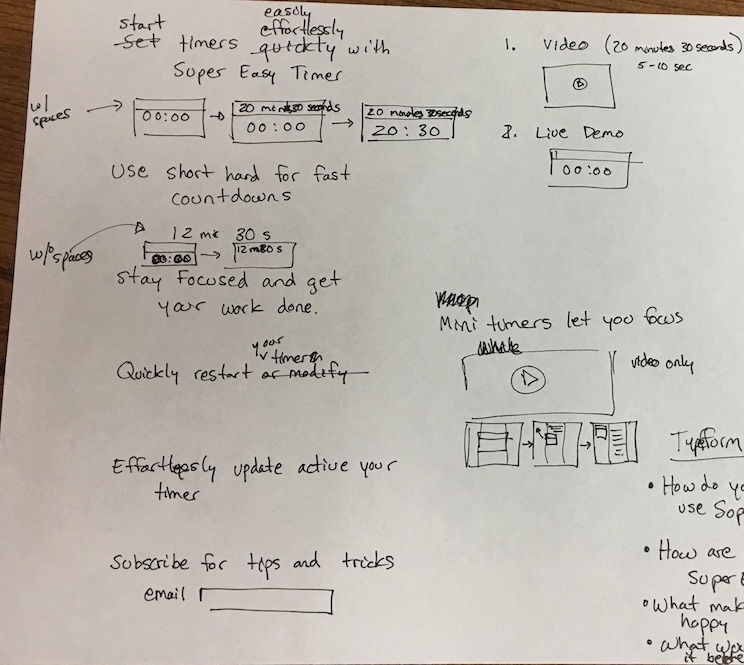 start easily
effortlessly
Set timers quickly with
Super Easy Timer
w/
spaces
00:00
20 minutes 30 seconds
00:00
20 minutes 30 seconds
20:30
Use short hard for fast
countdowns
w/o spaces
12 m 30 s
00:00
12m30s
Stay Focused and get
your work done.
your
timer
Quickly restart or modify
Effortlessly update active your
timer
Subscribe for tips and tricks
email
1. Video (20 minutes 30 seconds)
5-10 sec
2. Live Demo
00:00
Mini timers let you focus
video only
Typeform
• How do yo
use Sup
• How are
Super E
• What mak
happy
• What wo
it bette